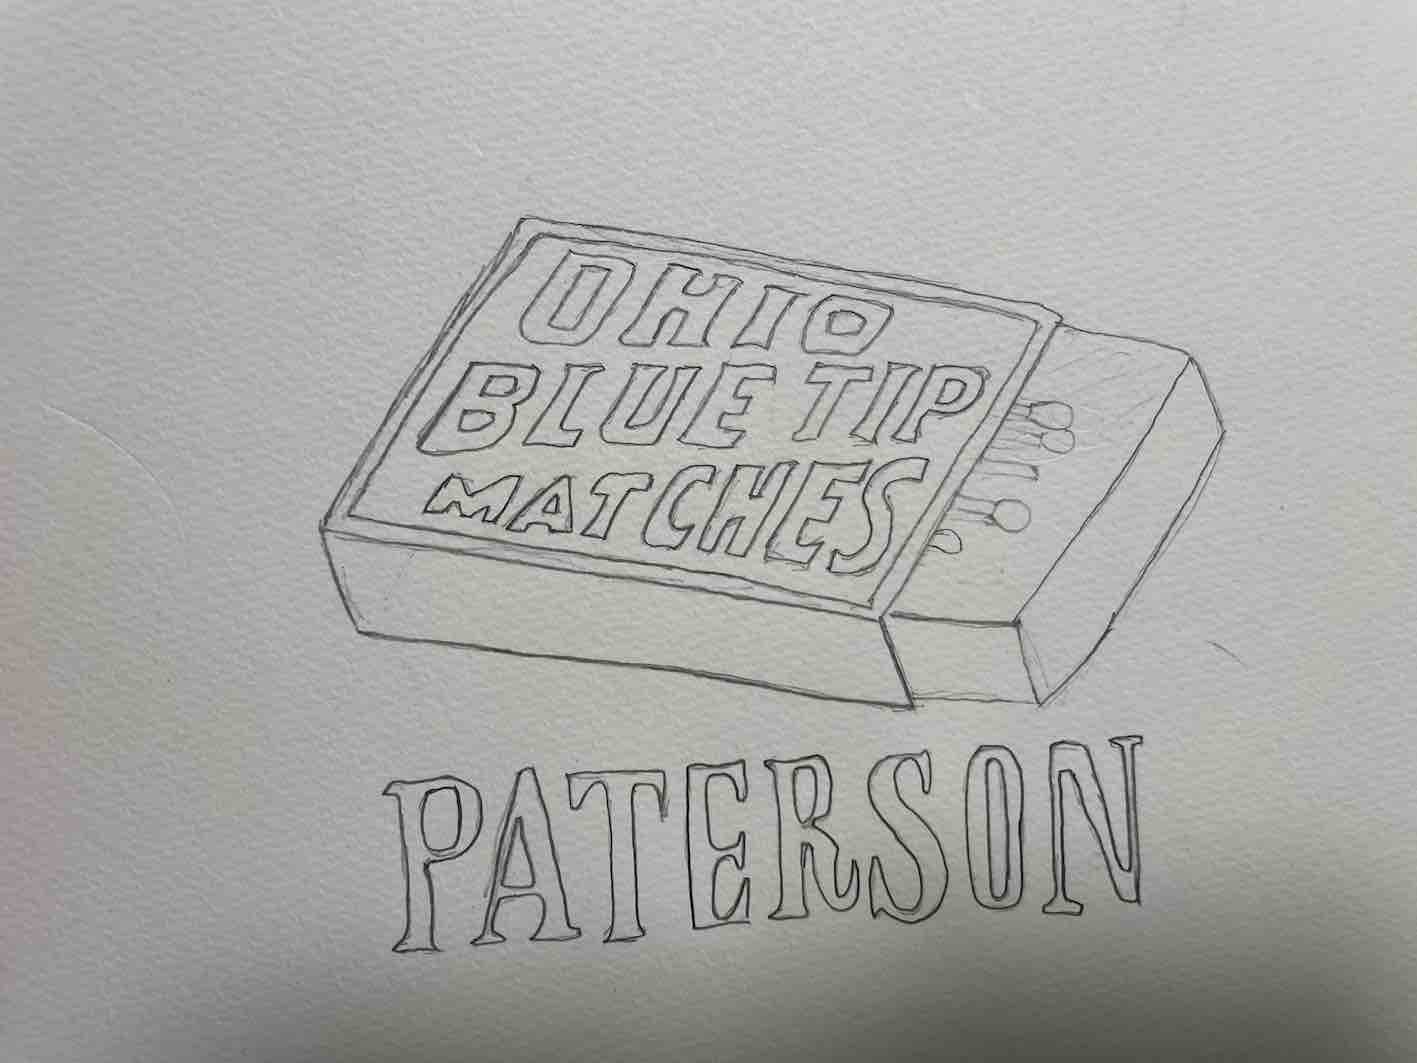 OHIO
BLUE TIP
MATCHES
PATERSON